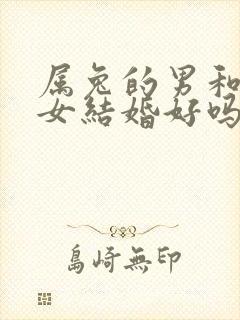 属兔的男和
女结婚好吗
島崎無印